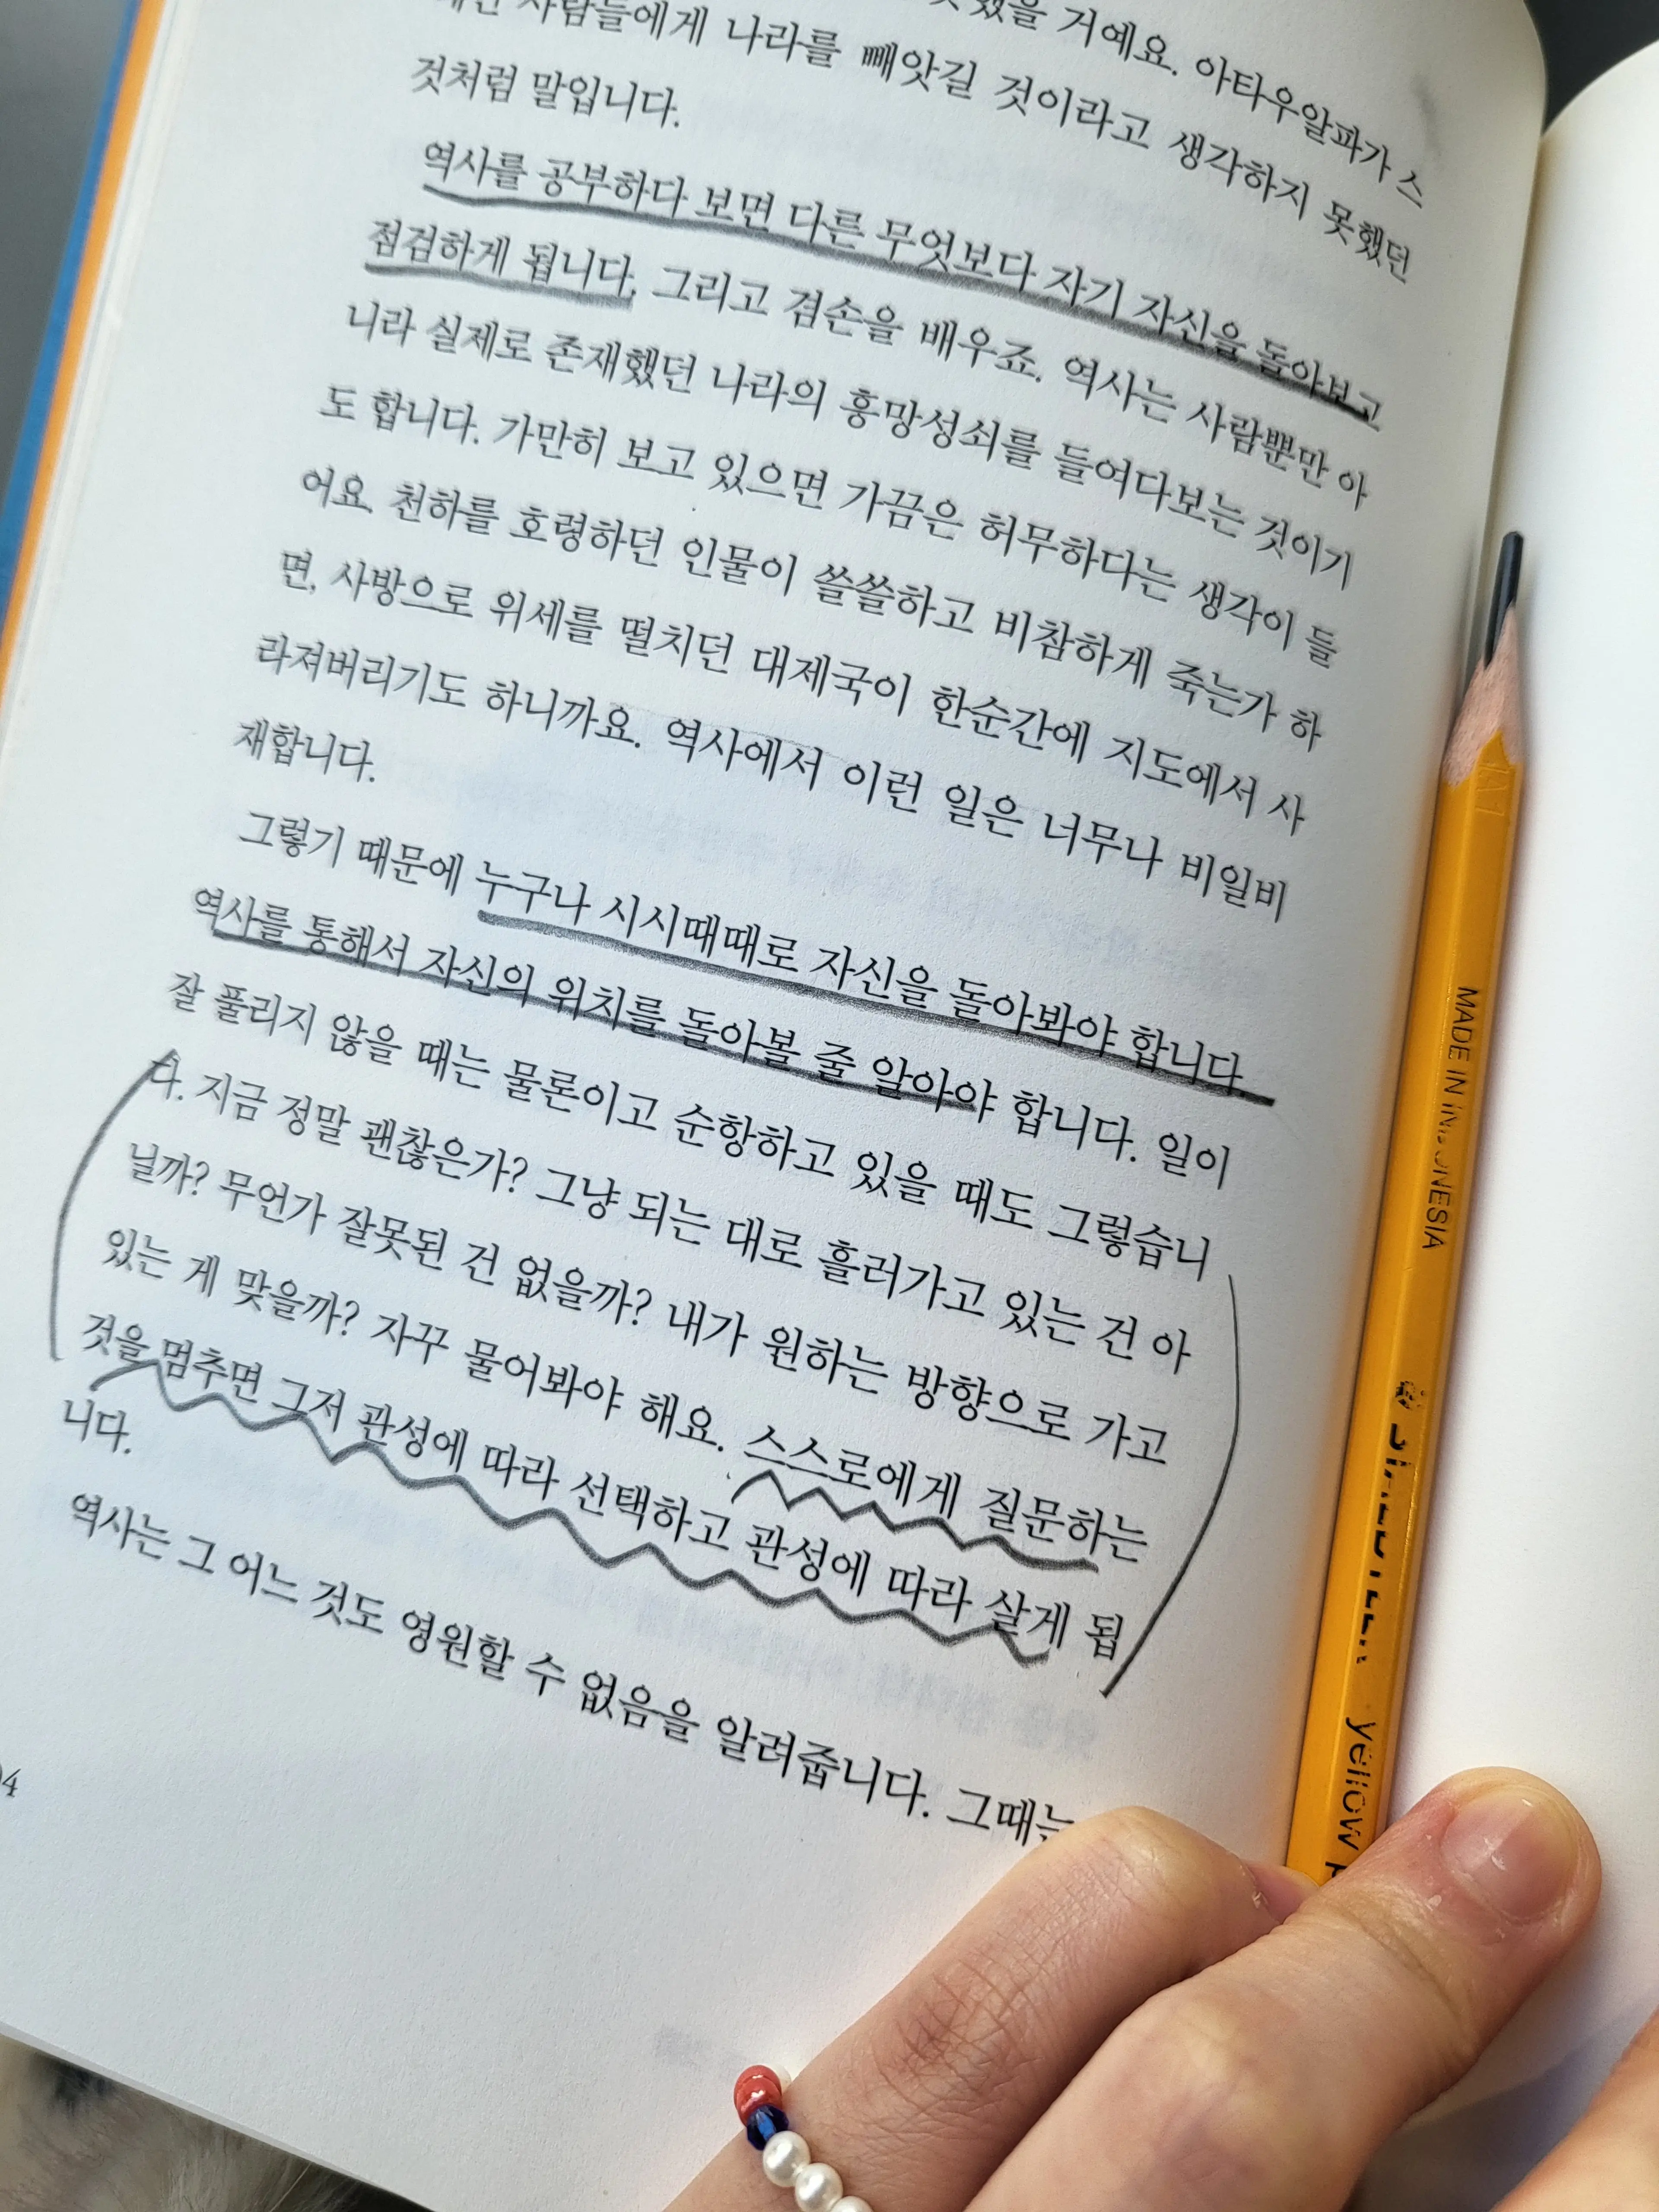 했을 거예요. 아타우알파가 스
사람들에게 나라를 빼앗길 것이라고 생각하지 못했던
것처럼 말입니다.
역사를 공부하다 보면 다른 무엇보다 자기 자신을 돌아보고
점검하게 됩니다. 그리고 겸손을 배우죠. 역사는 사람뿐만 아
니라 실제로 존재했던 나라의 흥망성쇠를 들여다보는 것이기
도 합니다. 가만히 보고 있으면 가끔은 허무하다는 생각이 들
어요. 천하를 호령하던 인물이 쓸쓸하고 비참하게 죽는가 하
면, 사방으로 위세를 떨치던 대제국이 한순간에 지도에서 사
라져버리기도 하니까요. 역사에서 이런 일은 너무나 비일비
재합니다.
그렇기 때문에 누구나 시시때때로 자신을 돌아봐야 합니다.
역사를 통해서 자신의 위치를 돌아볼 줄 알아야 합니다. 일이
잘 풀리지 않을 때는 물론이고 순항하고 있을 때도 그렇습니
다. 지금 정말 괜찮은가? 그냥 되는 대로 흘러가고 있는 건 아
닐까? 무언가 잘못된 건 없을까? 내가 원하는 방향으로 가고
있는 게 맞을까? 자꾸 물어봐야 해요. 스스로에게 질문하는
것을 멈추면 그저 관성에 따라 선택하고 관성에 따라 살게 됩
니다.
역사는 그 어느 것도 영원할 수 없음을 알려줍니다. 그때는
MADE IN INDONESIA
yellow